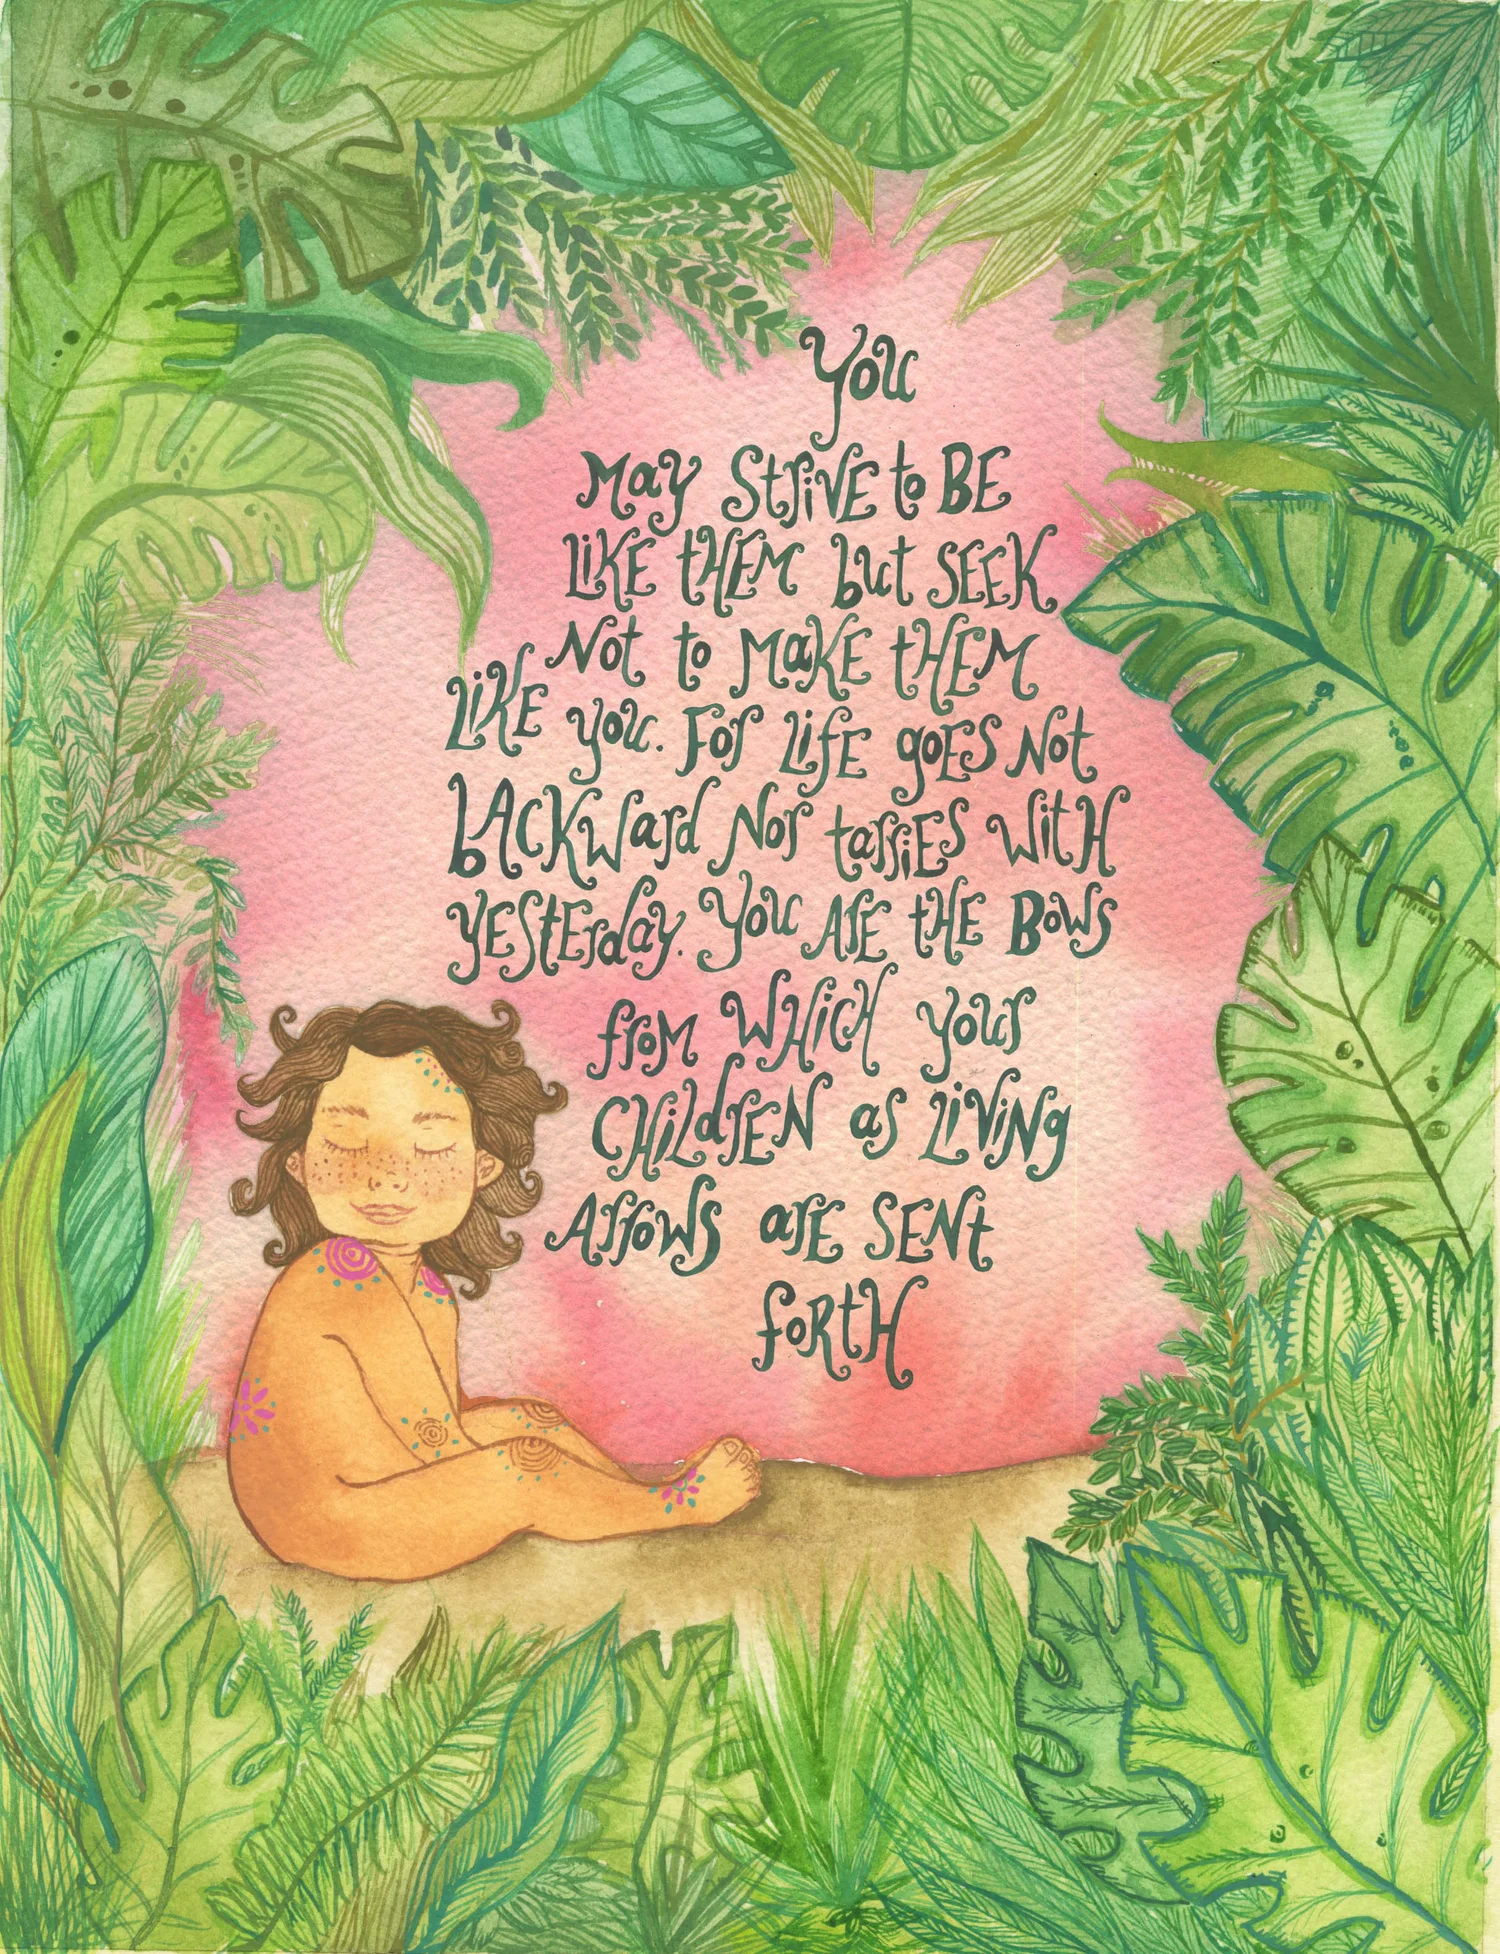 You
May Strive to BE
LiKE tHEM but SEEK
Not to MaKE tHEM
LiKE you. For LifE goES Not
bAcKWard Nor tarriES WitH
yEStErday. You ArE tHE Bows
from WHicH your
CHildrEN as LiViNg
Arrows arE SENt
foRtH